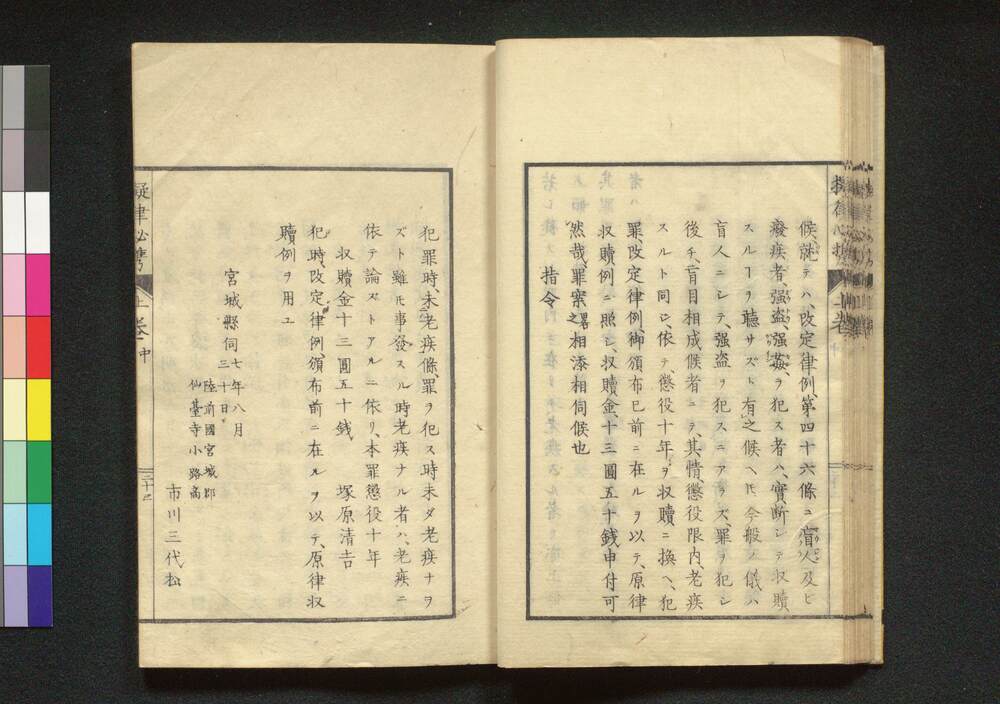 候、就テハ、改定律例、第四十六條ニ、盲人及ヒ
癈疾者、强盗、强姦、ヲ犯ス者ハ、實斷シテ收贖
スルヿヲ聽サズト有之候ヘ𪜈、今般ノ儀ハ
盲人ニシテ、强盗ヲ犯スニアラス、罪ヲ犯シ
後チ、盲目相成候者ニテ、其情、懲役限内、老疾
スルト同シ、依テ、懲役十年ヲ收贖ニ換ヘ、犯
罪、改定律例、御頒布已前ニ在ルヲ以テ、原律
收贖例ニ照シ、收贖金、十三圓五十錢申付可
然哉、罪案畧之相添相伺候也
指令
犯罪時、未老疾條、罪ヲ犯ス時未ダ老疾ナラ
ズト雖𪜈事發スル時老疾ナル者ハ、老疾ニ
依テ論ズトアルニ依リ、本罪懲役十年
收贖金十三圓五十錢 塚原清吉
犯時、改定律例、頒布前ニ在ルヲ以テ、原律收
贖例ヲ用ユ
宮城縣伺 七年八月三十日
陸前國宮城郡
仙臺寺小路
市川三代松
擬律必携 上卷 中